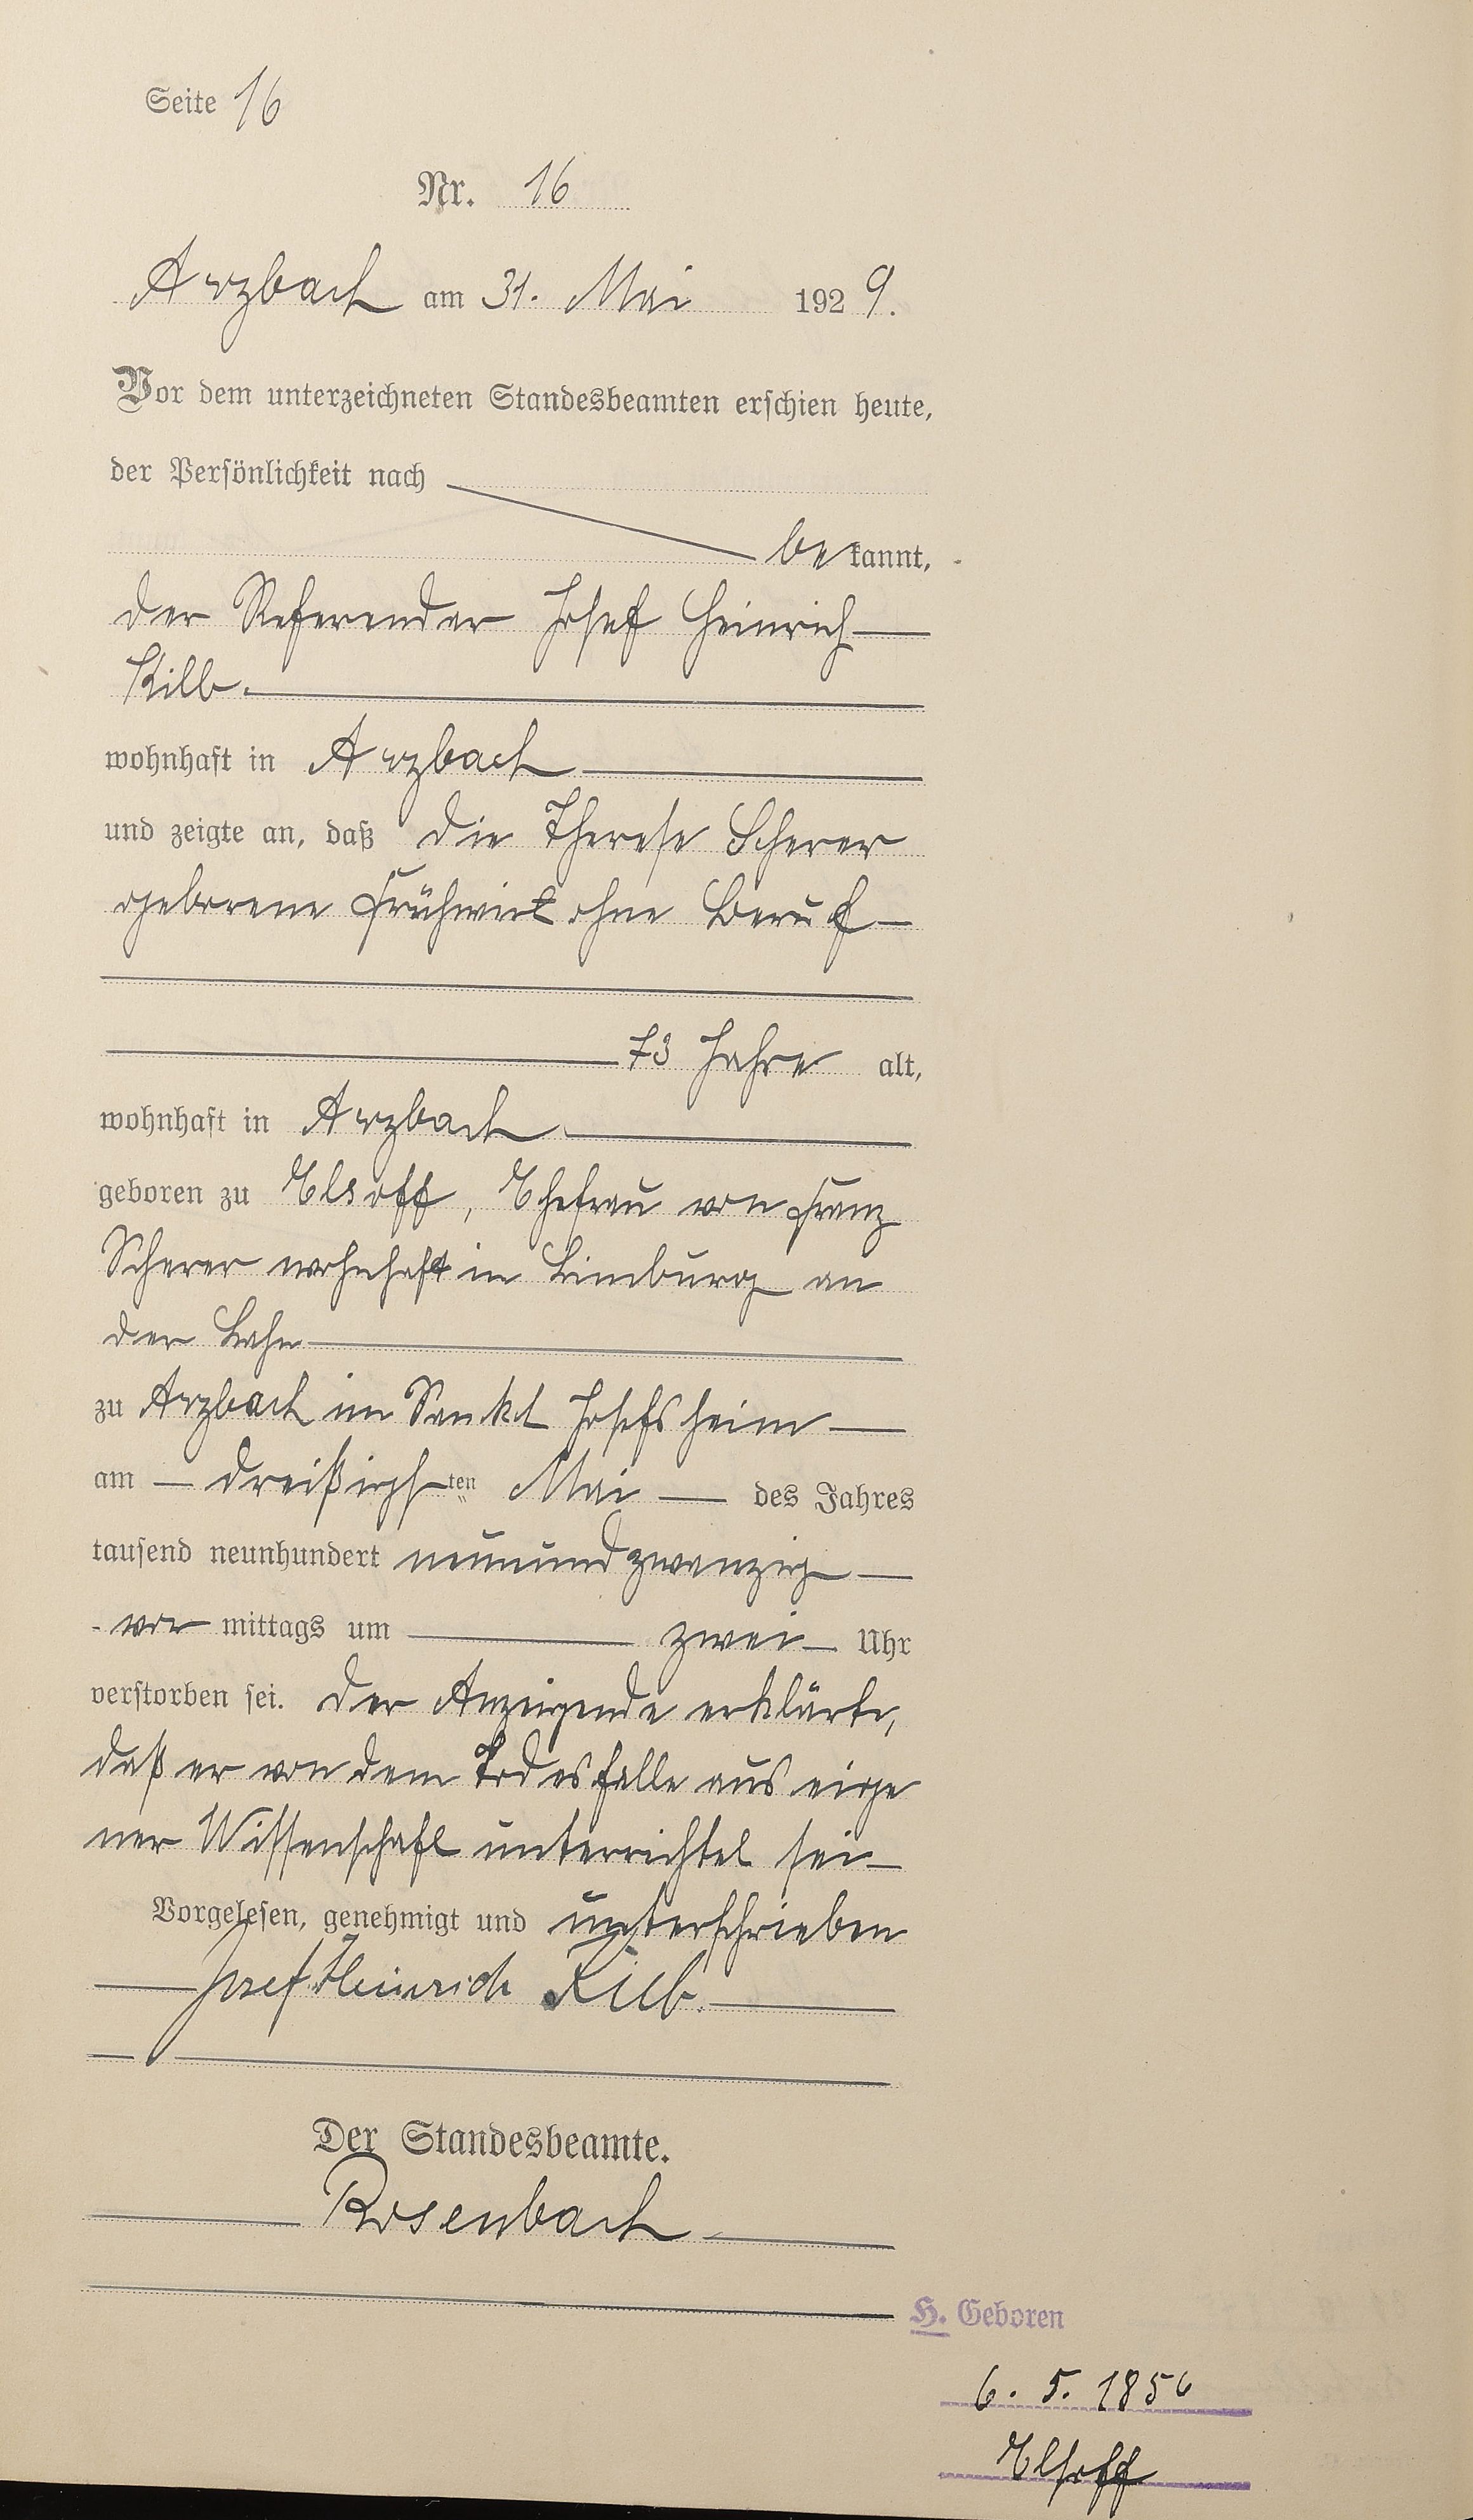 Seite 16
Nr. 16
Arzbach am 31. Mai 1929.
Vor dem unterzeichneten Standesbeamten erschien heute,
der Persönlichkeit nach
bekannt,
der Referendar Josef Heinrich
Kilb.
wohnhaft in Arzbach
und zeigte an, daß die Therese Scherer
geborene Frühwirt ohne Beruf
73 Jahre alt,
wohnhaft in Arzbach
geboren zu Elsoff, Ehefrau von Franz
Scherer wohnhaft in Limburg an
der Lahn
zu Arzbach im Sankt Josefsheim
am dreißigsten Mai des Jahres
tausend neunhundert neunundzwanzig
vor mittags um zwei Uhr
verstorben sei. Der Anzeigende erklärte,
daß er von dem Todesfalle aus eige
ner Wissenschaft unterrichtet sei
Vorgelesen, genehmigt und unterschrieben
Josef Heinrich Kilb.
Der Standesbeamte.
Rosenbach
H. Geboren
6. 5. 1856
Elsoff